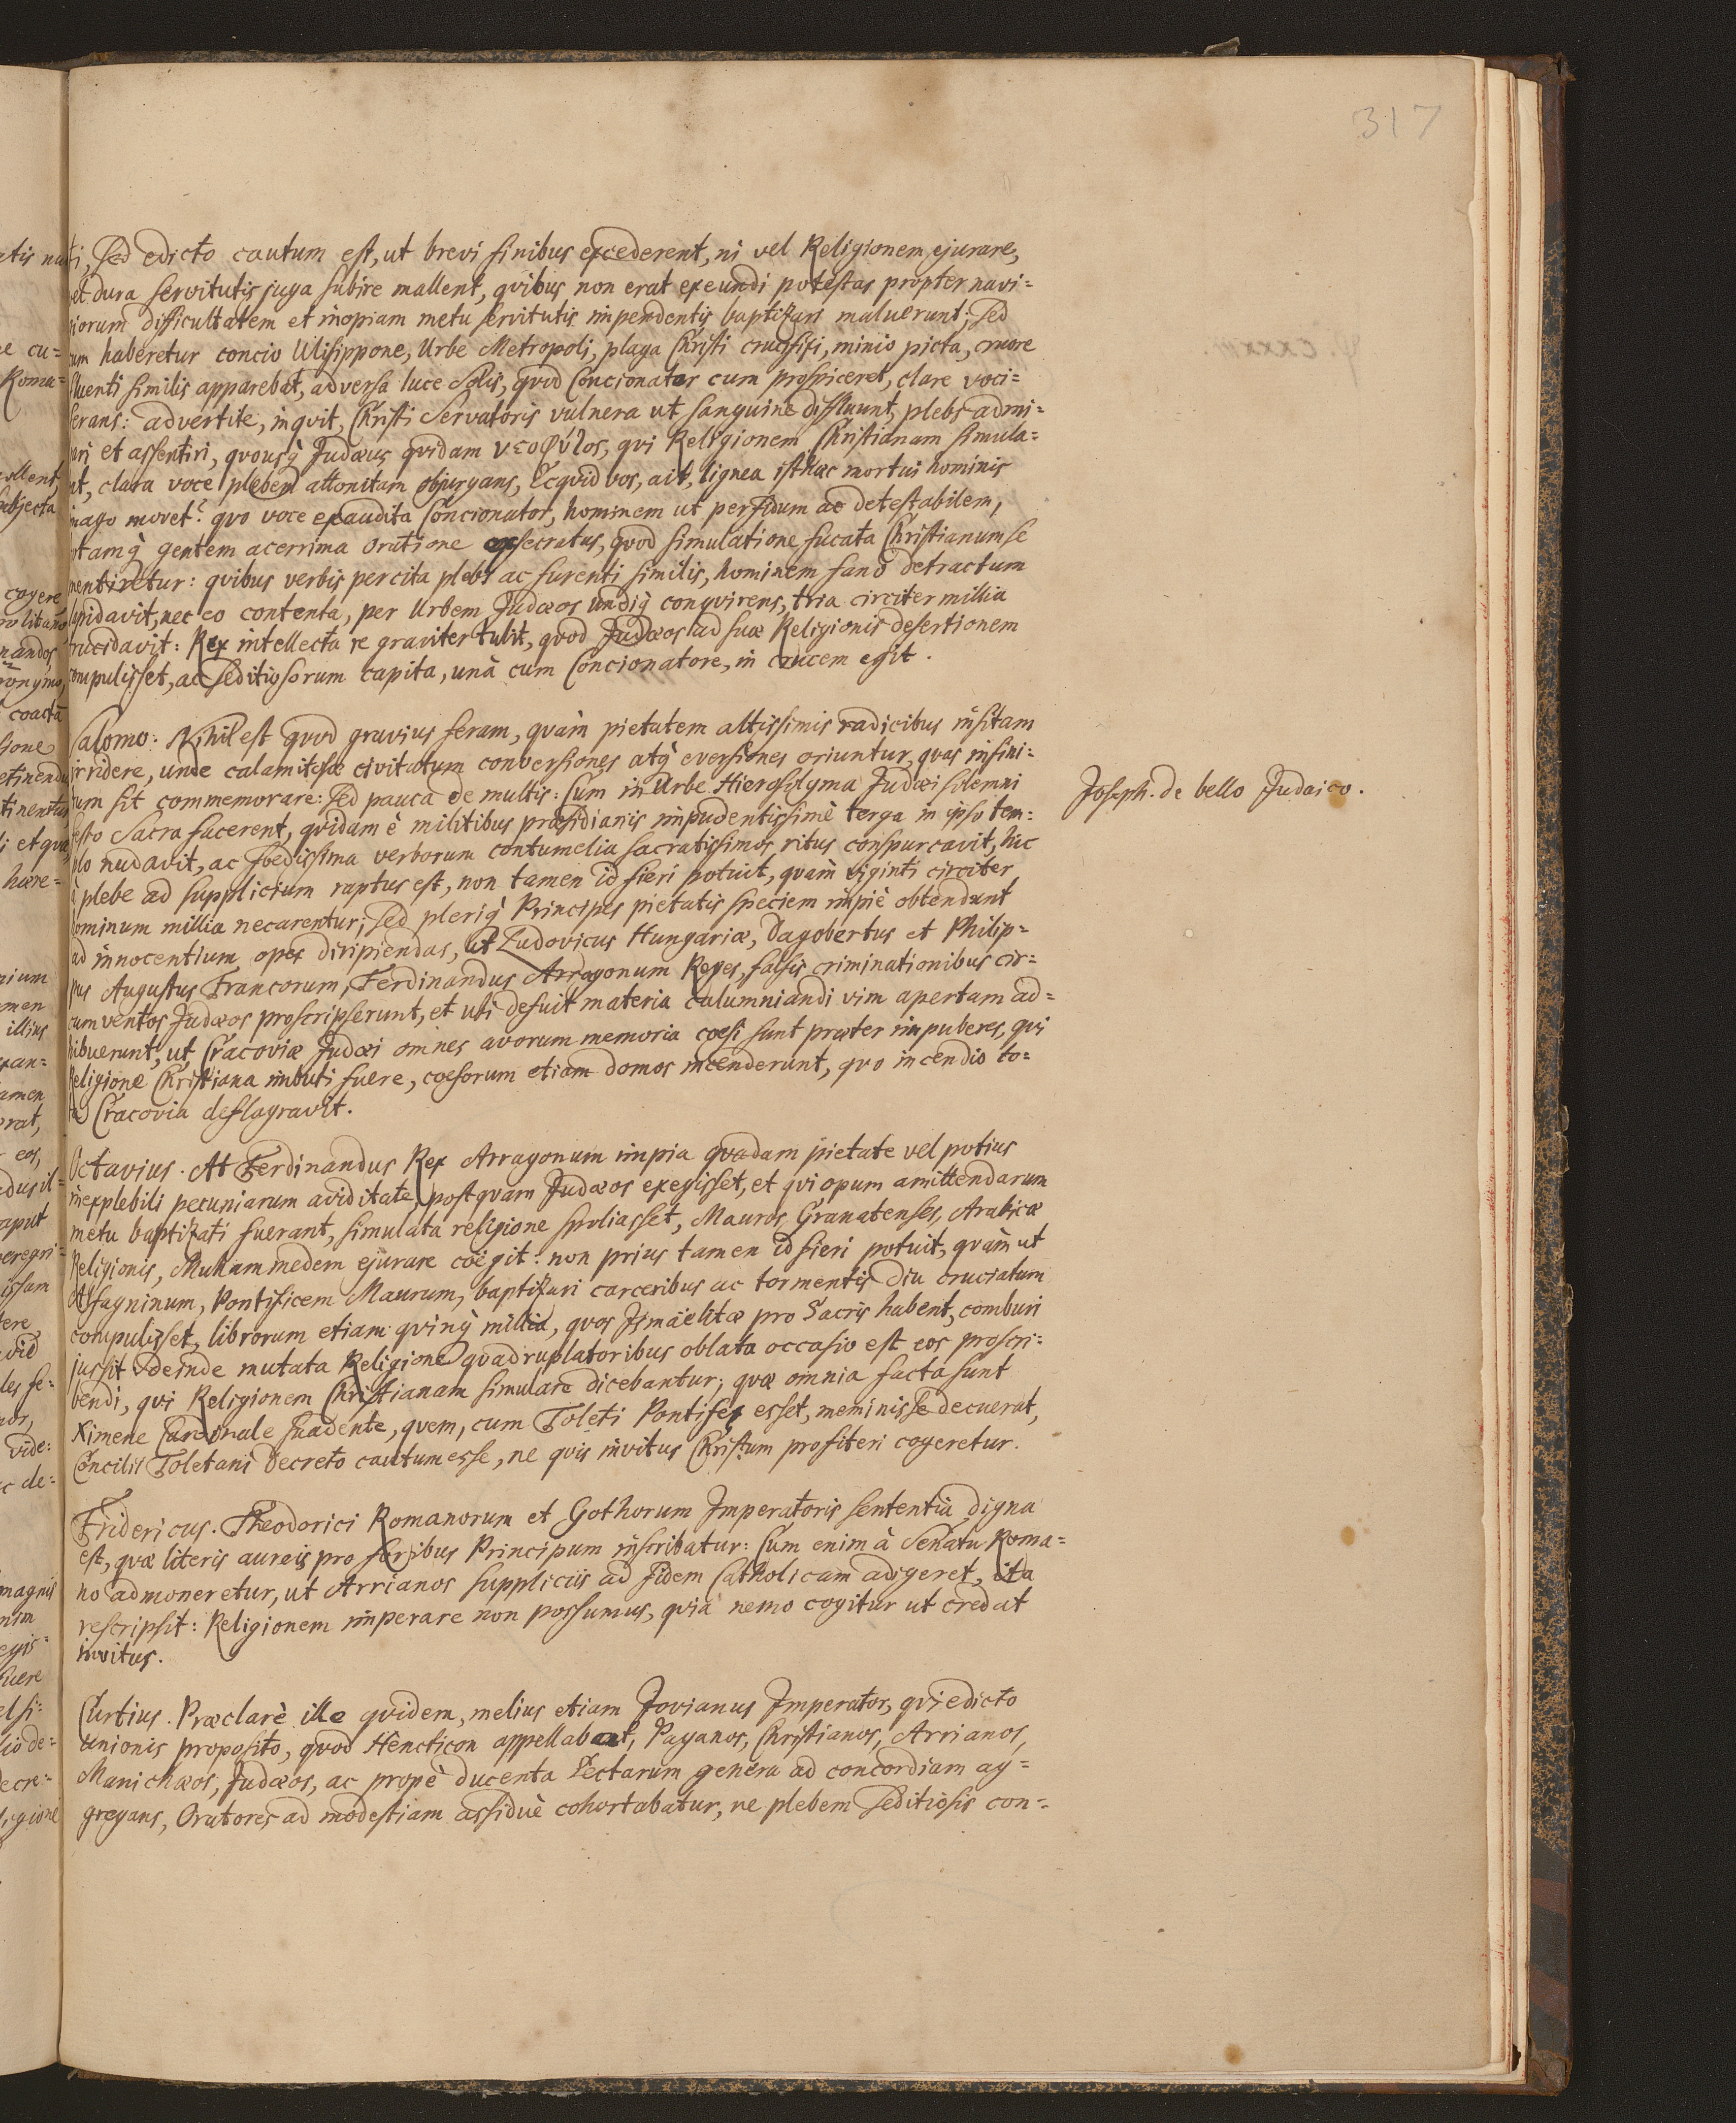 317
Sed edicto cautum est, ut brevi finibus excederent, ni vel Religionem ejurare,
vel dura servitutis juga subire mallent, quibus non erat exeundi potestas propter navi=
giorum difficultatem et inopiam metu servitutis impendentis baptizari maluerunt; Sed
cum haberetur concio Ulisippone, Urbe Metropoli, plaga Christi crucifixi, minio picta, more
fluenti similis apparebat, adversa luce Solis, quod Concionator cum prospiceret, clare voci=
ferans: advertite, inquit, Christi Servatoris vulnera ut sanguine diffluunt, plebs admi=
rari et assentiri, quousq̀ Judæus quidam νεοφύλος, qui Religionem Christianam simula=
at, clara voce plebem attonitam objurgans, Ecquid vos, ait, lignea isthæc mortui hominis
imago movet? quo voce exaudita Concionator, hominem ut perfidum ac detestabilem,
totamq̀ gentem acerrima oratione exsecratus, quod simulatione fucata Christianum se
mentiretur: quibus verbis percita plebs ac furenti similis, hominem fano detractum
lapidavit, nec eo contenta, per Urbem Judæos undiq̀ conquirens, tria circiter millia
trucidavit: Rex intellecta re graviter tulit, quod Judæos ad suæ Religionis desertionem
compulisset, ac seditiosorum capita, unà cum Concionatore, in crucem egit.
Salomo: Nihil est quod gravius feram, quàm pietatem altissimis radicibus insitam
irridere, unde calamitosæ civitatum conversiones atq̀ eversiones oriuntur, quas infini=
tum sit commemorare: Sed pauca de multis: Cum in Urbe Hierosolyma Judæi solemni
festo Sacra facerent, quidam è militibus præsidianis impudentissimè terga in ipso tem=
plo nudavit, ac foedissima verborum contumelia sacratissimos ritus conspurcavit, hic
à plebe ad supplicium raptus est, non tamen id fieri potuit, quàm viginti circiter
hominum millia necarentur; Sed pleriq̀ Principes pietatis speciem impiè obtendunt
ad innocentium opes diripiendas, ut Ludovicus Hungariæ, Dagobertus et Philip=
pus Augustus Francorum, Ferdinandus Arragonum Reges, falsis criminationibus cir=
cumventos Judæos proscripserunt, et ubi defuit materia calumniandi vim apertam ad=
hibuerunt, ut Cracoviæ Judæi omnes avorum memoria coesi sunt præter impuberes, qui
Religione Christiana imbuti fuere, coesorum etiam domos incenderunt, quo incendio to=
ta Cracovia deflagravit.
Joseph. de bello Judaico.
Octavius. At Ferdinandus Rex Arragonum impia quadam pietate vel potius
inexplebili pecuniarum aviditate, postquam Judæos exegisset, et qui opum amittendarum
metu baptizati fuerant, simulata religione spoliasset, Mauros Granatenses, Arabicæ
Religionis, Muhammedem ejurare coëgit: non prius tamen id fieri potuit, quàm ut
Alfagninum, Pontificem Maurum, baptizari carceribus ac tormentis diu cruciatum
compulisset, librorum etiam quinq̀ millia, quos Ismäelitæ pro Sacris habent, comburi
jussit Deinde mutata Religione quadruplatoribus oblata occasio est eos proscri=
bendi, qui Religionem Christianam simulare dicebantur; quæ omnia facta sunt
Ximene Cardinale suadente, quem, cum Toleti Pontifex esset, meminisse decuerat,
Concilii Toletani Decreto cautum esse, ne quis invitus Christum profiteri cogeretur.
Fridericus. Theodorici Romanorum et Gothorum Imperatoris sententia digna
est, quæ literis aureis pro foribus Principum inscribatur: Cum enim à Senatu Roma=
no admoneretur, ut Arrianos suppliciis ad fidem Catholicam adigeret, ita
rescripsit: Religionem imperare non possumus, quia nemo cogitur ut credat
invitus.
Curtius. Præclarè ille quidem, melius etiam Jovianus Imperator, qui edicto
unionis proposito, quod Hencticon appellabant, Paganos, Christianos, Arrianos,
Manichæos, Judæos, ac propè ducenta Sectarum genera ad concordiam ag=
gregans, Oratores ad modestiam assiduè cohortabatur, ne plebem Seditiosis con=